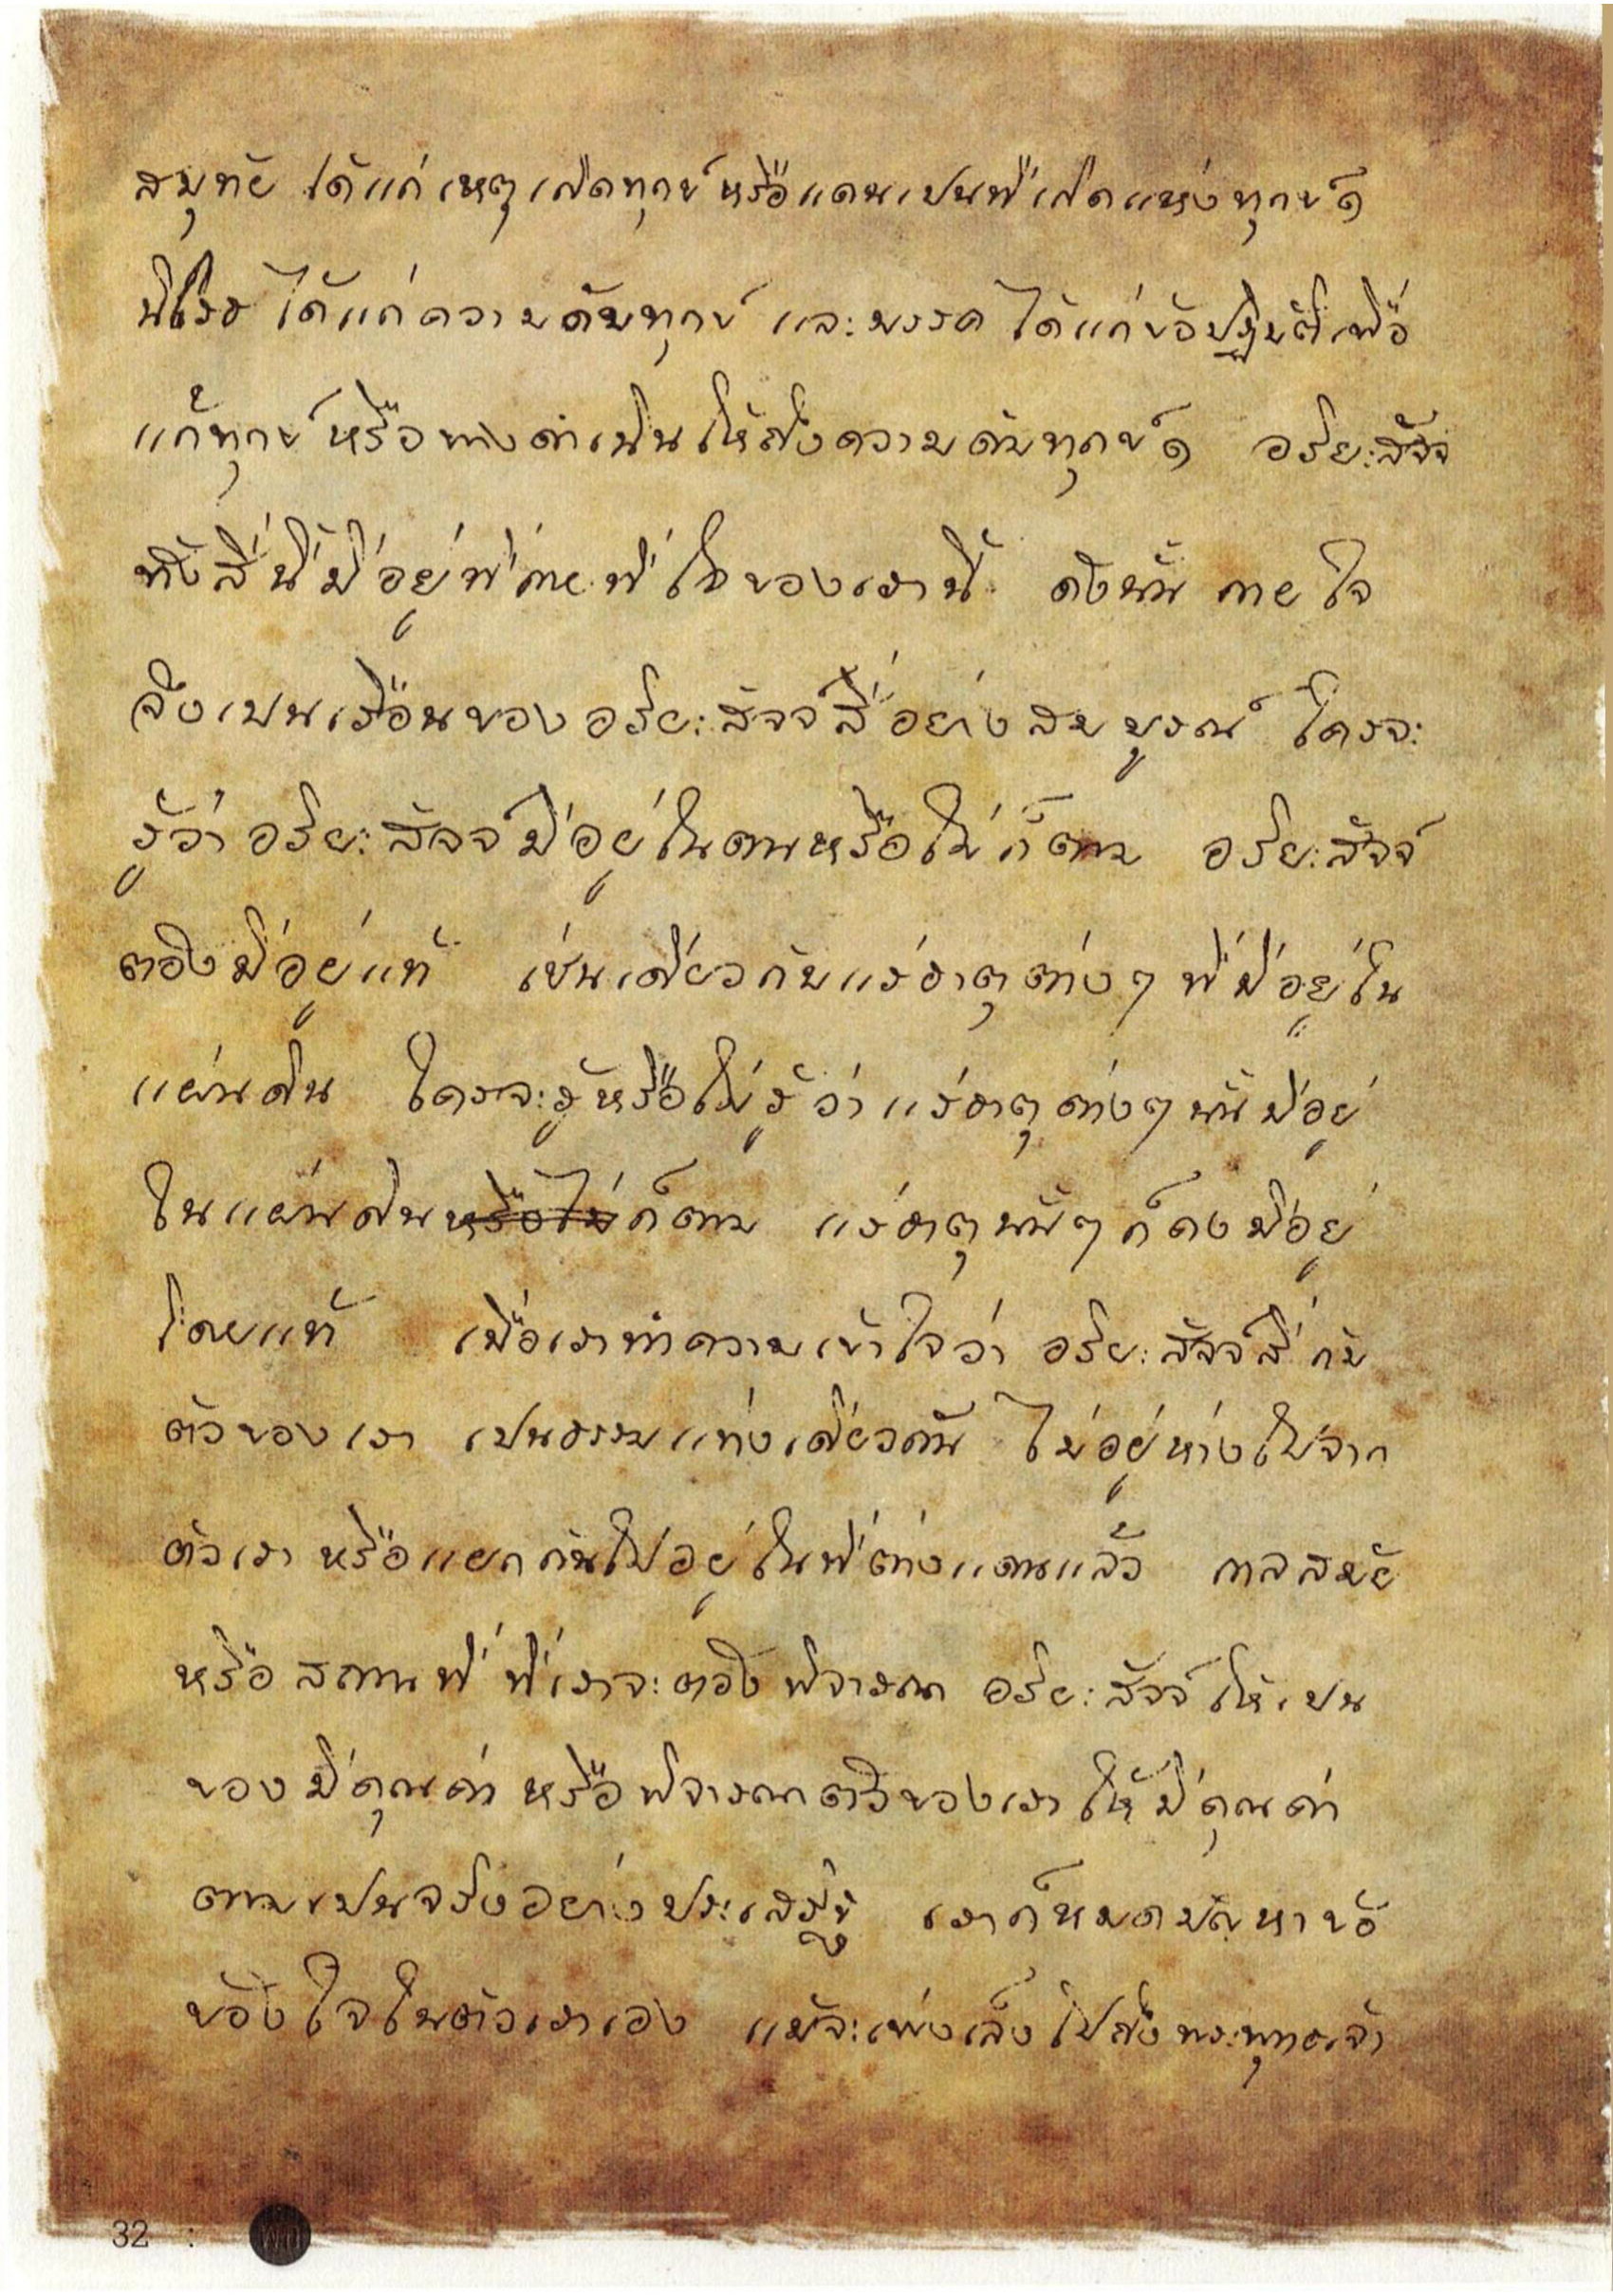 สมุทัย ได้แก่ เหตุเกิดทุกข์ หรือแดนเปนที่เกิดแห่งทุกข์ ๑
นิโรธ ได้แก่ความดับทุกข์ และมรรค ได้แก่ข้อปฏิบัติเพื่อ
แก้ทุกข์ หรือทางดำเนินให้ถึงความดับทุกข์ ๑ อริยะสัจจ
ทั้งสี่นี้มีอยู่ที่กายที่ใจของเรานี้ ดังนั้น กายใจ
จึงเปนเรือนของอริยะสัจจ์สี่อย่างสมบูรณ์ ใครจะ
รู้ว่าอริยะสัจจ์มีอยู่ในตนหรือไม่ก็ตาม อริยะสัจจ์
ต้องมีอยู่แท้ เช่นเดียวกับแร่ธาตุต่างๆ ที่มีอยู่ใน
แผ่นดิน ใครจะรู้หรือไม่รู้ว่าแร่ธาตุต่างๆ นั้นมีอยู่
ในแผ่นดินหรือไม่ก็ตาม แร่ธาตุนั้นๆ ก็คงมีอยู่
โดยแท้ เมื่อเราทำความเข้าใจว่า อริยะสัจจ์สี่กับ
ตัวของเรา เปนธรรมแท่งเดียวกัน ไม่อยู่ห่างไปจาก
ตัวเรา หรือแยกกันไปอยู่ในที่ต่างแดนแล้ว กาลสมัย
หรือสถานที่ ที่เราจะต้องพิจารณา อริยะสัจจ์ให้เปน
ของมีคุณค่า หรือพิจารณาตัวของเราให้มีคุณค่า
ตามเปนจริงอย่างประเสริฐ เราก็หมดปัญหาข้อ
ข้องใจในตัวเราเอง แม้จะเพ่งเล็งไปถึงพระพุทธเจ้า
32 :